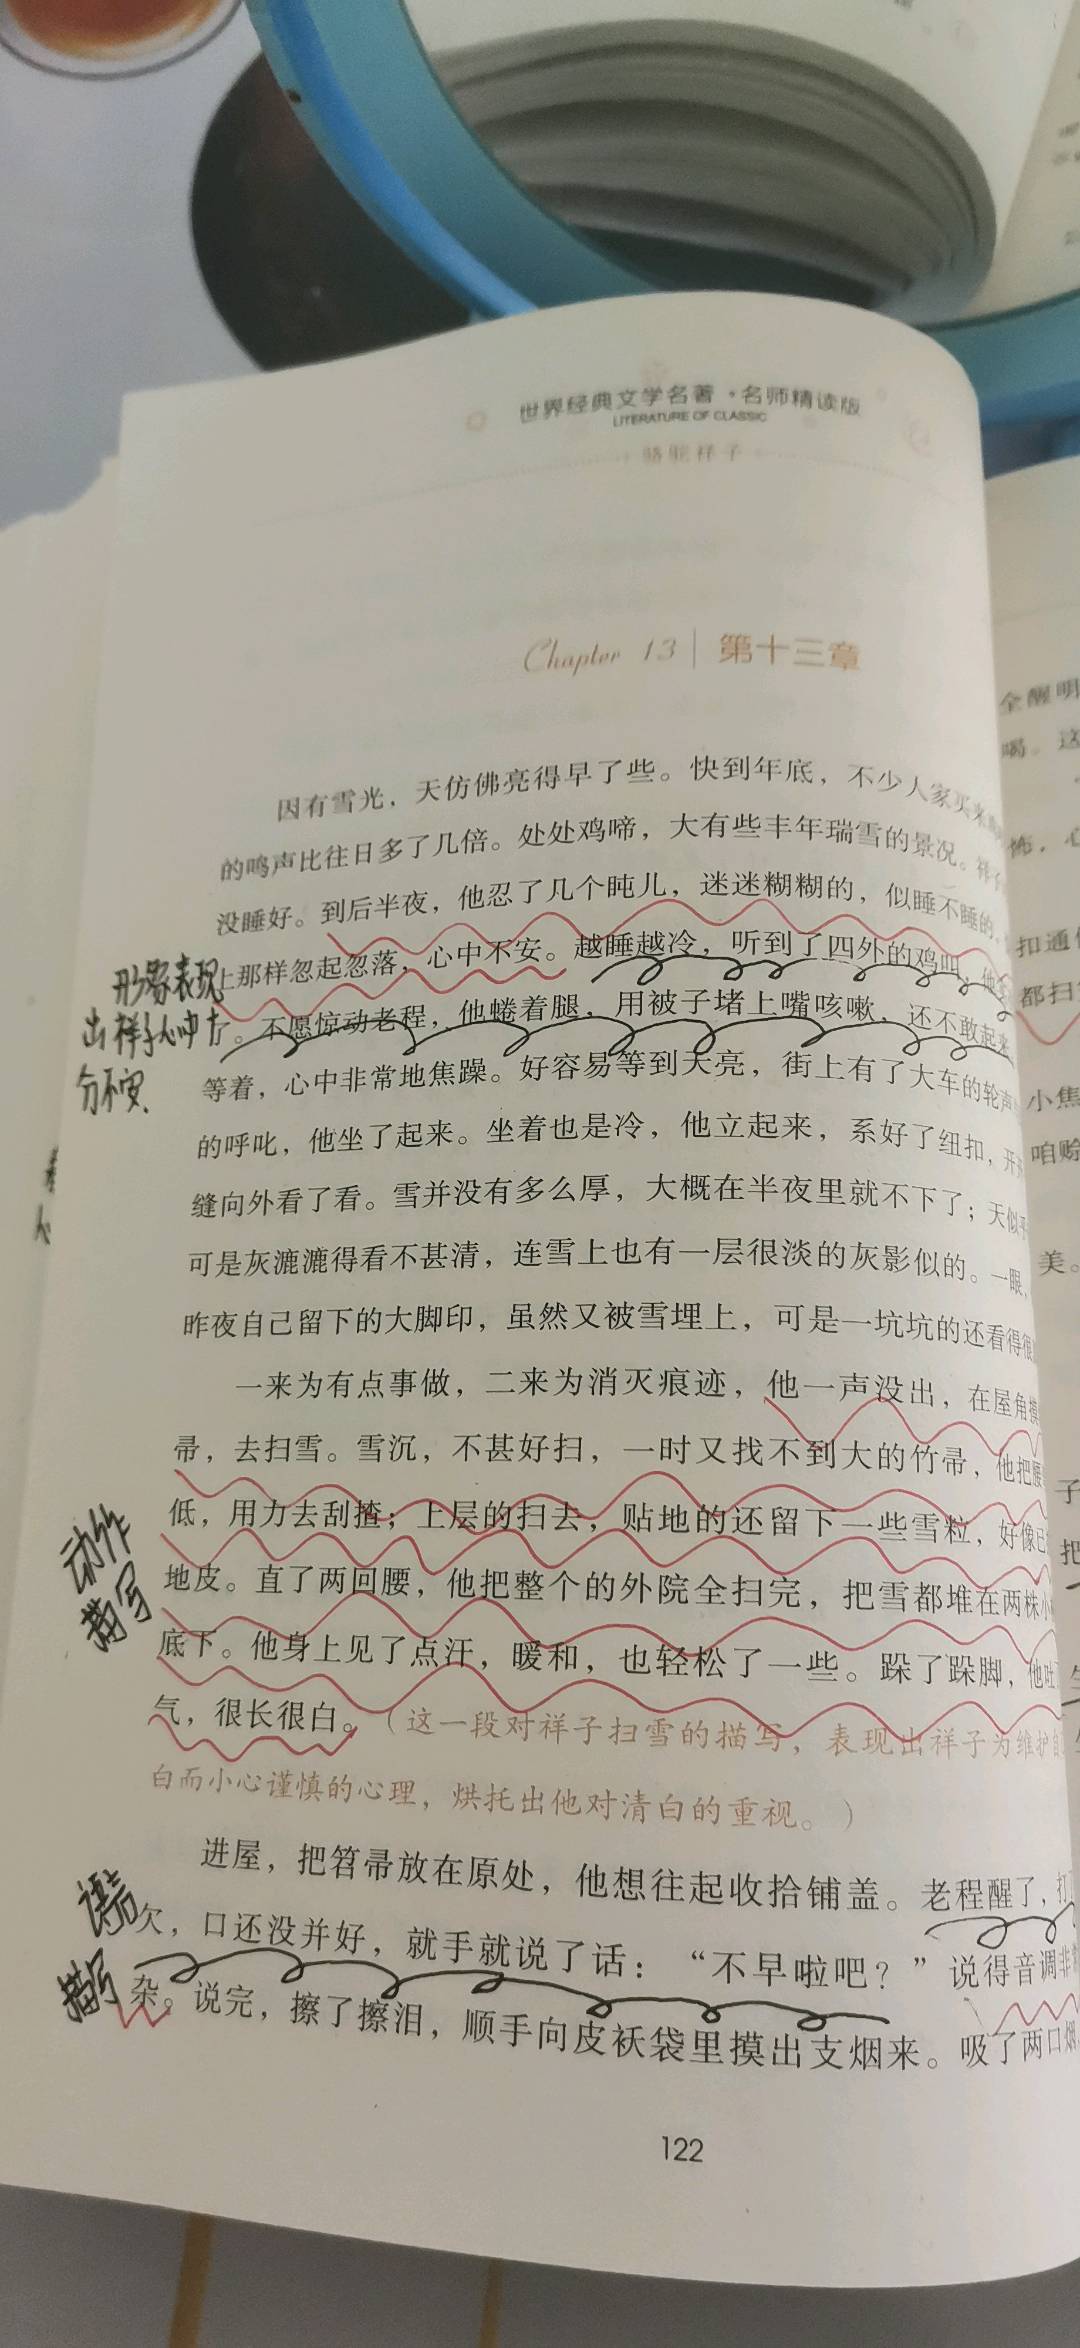 世界经典文学名著·名师精读版
LITERATURE OF CLASSIC
骆驼祥子
Chapter 13 | 第十三章
因有雪光，天仿佛亮得早了些。快到年底，不少人家买来
的鸣声比往日多了几倍。处处鸡啼，大有些丰年瑞雪的景况。祥子
没睡好。到后半夜，他忍了几个盹儿，迷迷糊糊的，似睡不睡的，
上那样忽起忽落，心中不安。越睡越冷，听到了四外的鸡叫，他
了。不愿惊动老程，他蜷着腿，用被子堵上嘴咳嗽，还不敢起来
等着，心中非常地焦躁。好容易等到天亮，街上有了大车的轮声
的呼叱，他坐了起来。坐着也是冷，他立起来，系好了纽扣，开
缝向外看了看。雪并没有多么厚，大概在半夜里就不下了；天似乎
可是灰漉漉得看不甚清，连雪上也有一层很淡的灰影似的。一眼，
昨夜自己留下的大脚印，虽然又被雪埋上，可是一坑坑的还看得很
一来为有点事做，二来为消灭痕迹，他一声没出，在屋角摸
帚，去扫雪。雪沉，不甚好扫，一时又找不到大的竹帚，他把腰
低，用力去刮揸；上层的扫去，贴地的还留下一些雪粒，好像已
地皮。直了两回腰，他把整个的外院全扫完，把雪都堆在两株小
底下。他身上见了点汗，暖和，也轻松了一些。跺了跺脚，他吐
气，很长很白。（这一段对祥子扫雪的描写，表现出祥子为维护自
白而小心谨慎的心理，烘托出他对清白的重视。）
进屋，把笤帚放在原处，他想往起收拾铺盖。老程醒了，打
欠，口还没并好，就手就说了话：“不早啦吧？”说得音调非常
杂。说完，擦了擦泪，顺手向皮袄袋里摸出支烟来。吸了两口烟
122
形象表现
出祥子心中十
分不安、
动作
描写
语言
描写
全醒明
喝。这
饰，心
扣通
都扫
小焦
咱赊
美。
子
把